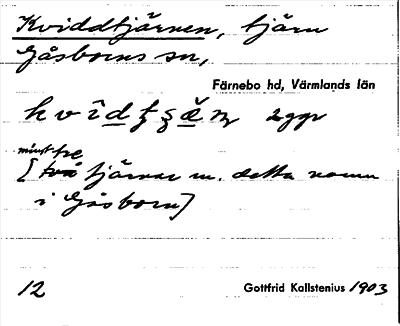 Kviddtjärnen, tjärn
Gåsborns sn,
Färnebo hd, Värmlands län
2 ggr
minst tre
[två tjärnar m. detta namn
i Gåsborn]
12
Gottfrid Kallstenius 1903